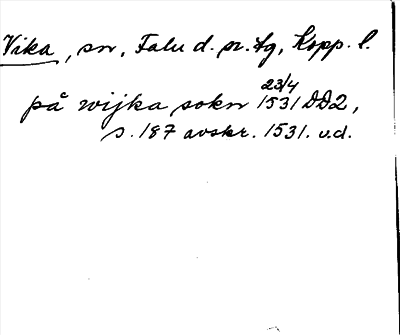 Vika, sn, Falu d. sr. tg, Kopp. l.
23/4
på wijka sokn 1531 DD2,
s. 187 avskr. 1531. v.d.